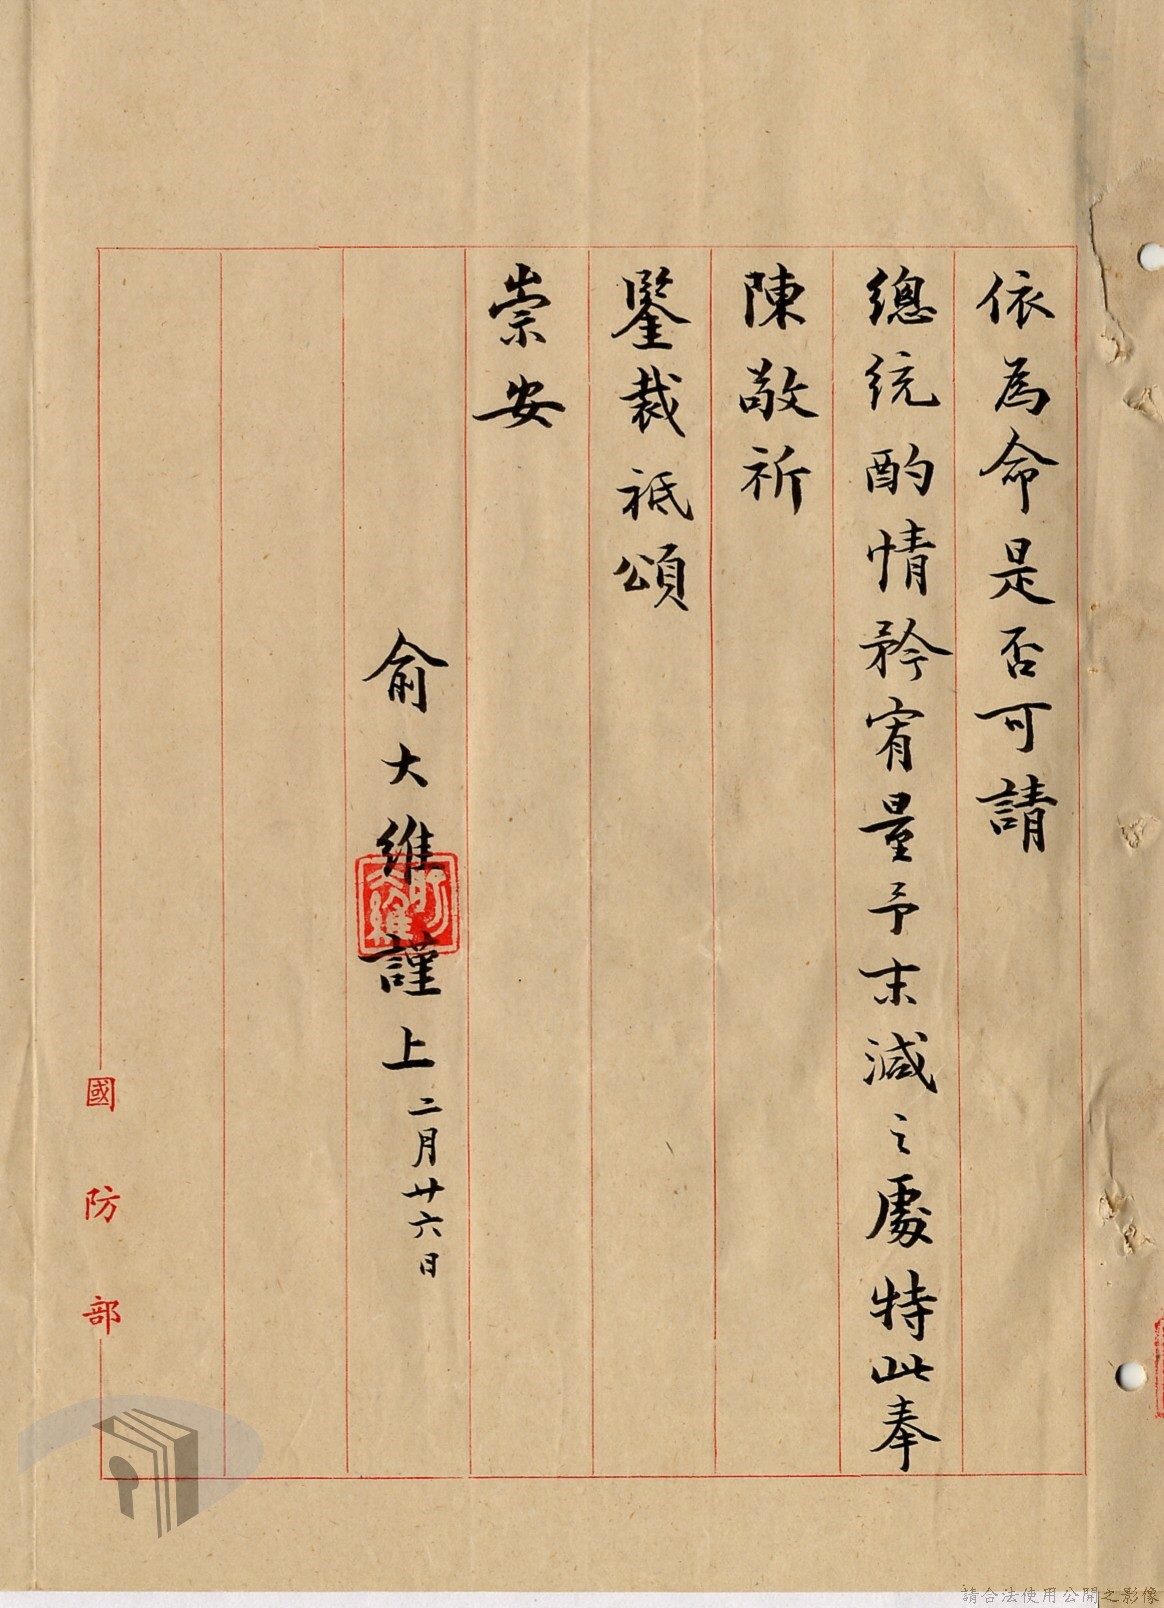 依為命是否可請
總統酌情矜宥量予末減之處特此奉
陳敬祈
鑒裁祗頌
崇安
俞大維謹上 二月廿六日
大維
國防部
請合法使用公開之影像